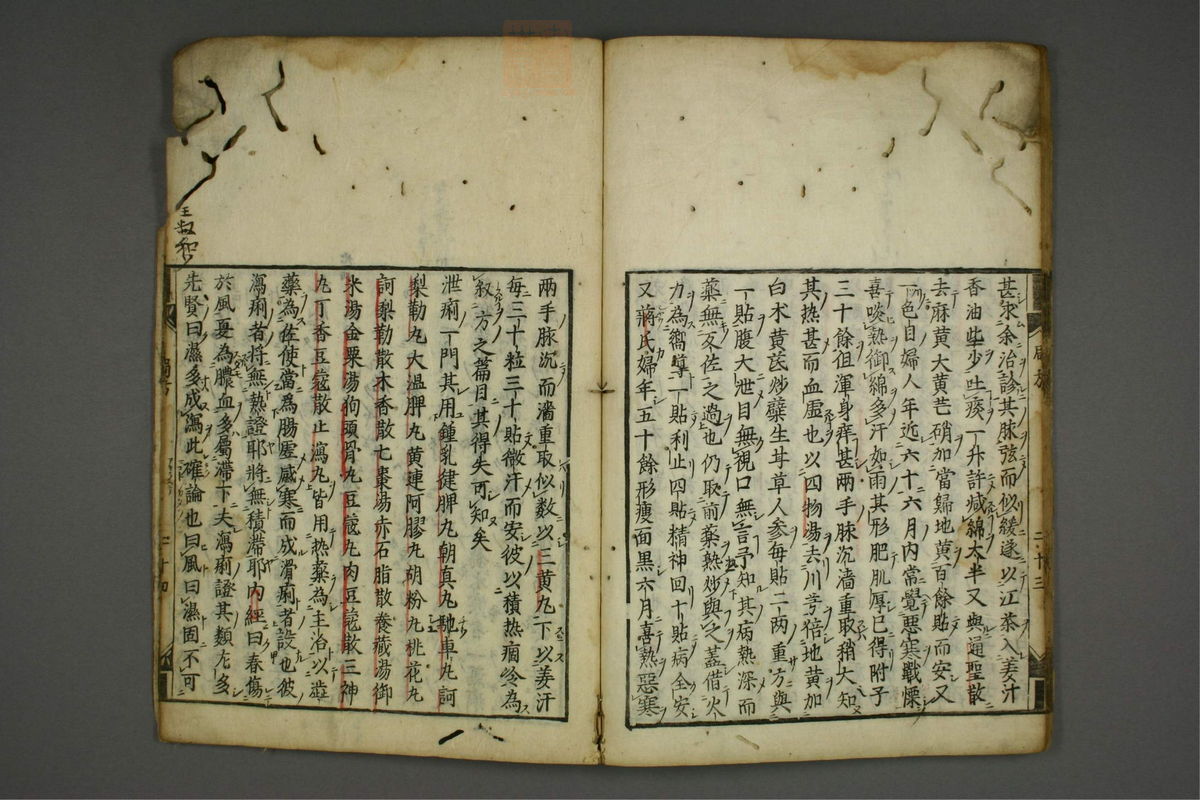 甚求余治診其脉弦而似緩遂以江茶入姜汁
香油些少吐痰一升許减綿太半又與通聖散
去麻黄大黄芒硝加當歸地黄百餘貼而安又
一色目婦人年近六十六月内常覺惡寒戰慄
喜啖熱御綿多汗如雨其形肥肌厚已得附子
三十餘但渾身痒甚兩手脉沉濇重取稍大知
其热甚而血虚也以四物湯去川芎倍地黄加
白术黄芪炒蘗生甘草人参每貼二兩重方與
一貼腹大泄目無視口無言予知其病熱深而
藥無反佐之過也仍取前薬熱炒與之盖借火
力為嚮導一貼利止四貼精神回十貼病全安
又蔣氏婦年五十餘形瘦面黒六月喜熱惡寒
二十三
兩手脉沉而濇重取似数以三黄丸下以姜汁
每三十粒三十貼微汗而安彼以積热痼冷為
叙方之篇目其得失可知矣
泄痢一門其用鍾乳健脾丸朝真丸駞車丸訶
梨勒丸大温脾丸黄連阿膠丸胡粉丸桃花丸
訶梨勒散木香散七棗湯赤石脂散養藏湯御
米湯金粟湯狗頭骨丸豆蔻丸肉豆蔻散三神
丸丁香豆蔻散止瀉丸皆用热藥為主治以澁
藥為佐使當為腸虚感寒而成滑痢者設也彼
瀉痢者将無熱證耶将無積滞耶内經曰春傷
於風夏為膿血多屬滞下夫瀉痢證其類尤多
先賢曰濕多成瀉此確論也曰風曰濕固不可
二十四
王叔和